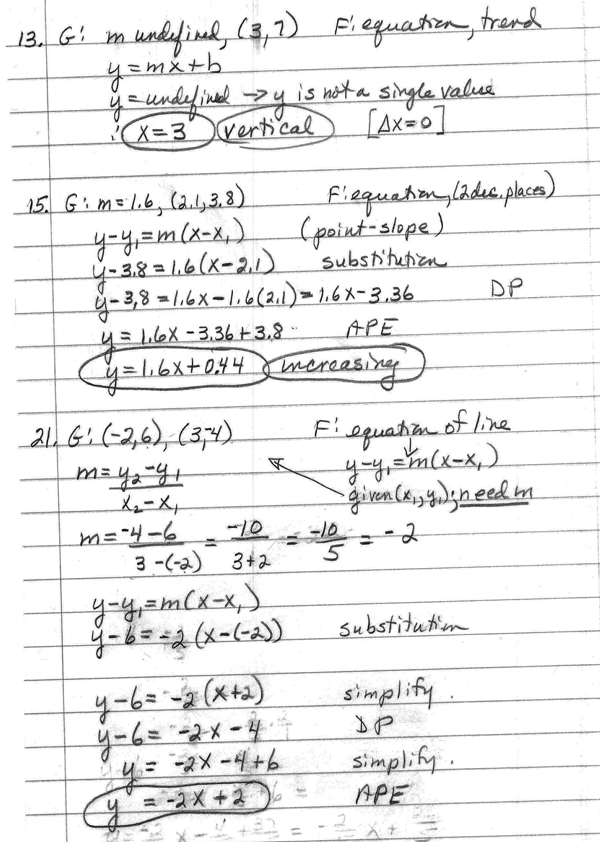 13. G: m undefined, (3,7) F: equation, trend
y=mx+b
y=undefined → y is not a single value
∴ x=3 vertical [Δx=0]
15. G: m=1.6, (2.1,3.8) F: equation, (2 dec. places)
y-y₁=m(x-x₁) (point-slope)
y-3.8=1.6(x-2.1) substitution
y-3.8=1.6x-1.6(2.1)=1.6x-3.36 DP
y=1.6x-3.36+3.8 APE
y=1.6x+0.44 increasing
21. G: (-2,6), (3,-4) F: equation of line
m=(y₂-y₁)/(x₂-x₁) y-y₁=m(x-x₁)
given (x₁,y₁); need m
m=(-4-6)/(3-(-2)) = -10/(3+2) = -10/5 = -2
y-y₁=m(x-x₁)
y-6=-2(x-(-2)) substitution
y-6=-2(x+2) simplify.
y-6=-2x-4 DP
y=-2x-4+6 simplify.
y=-2x+2 APE